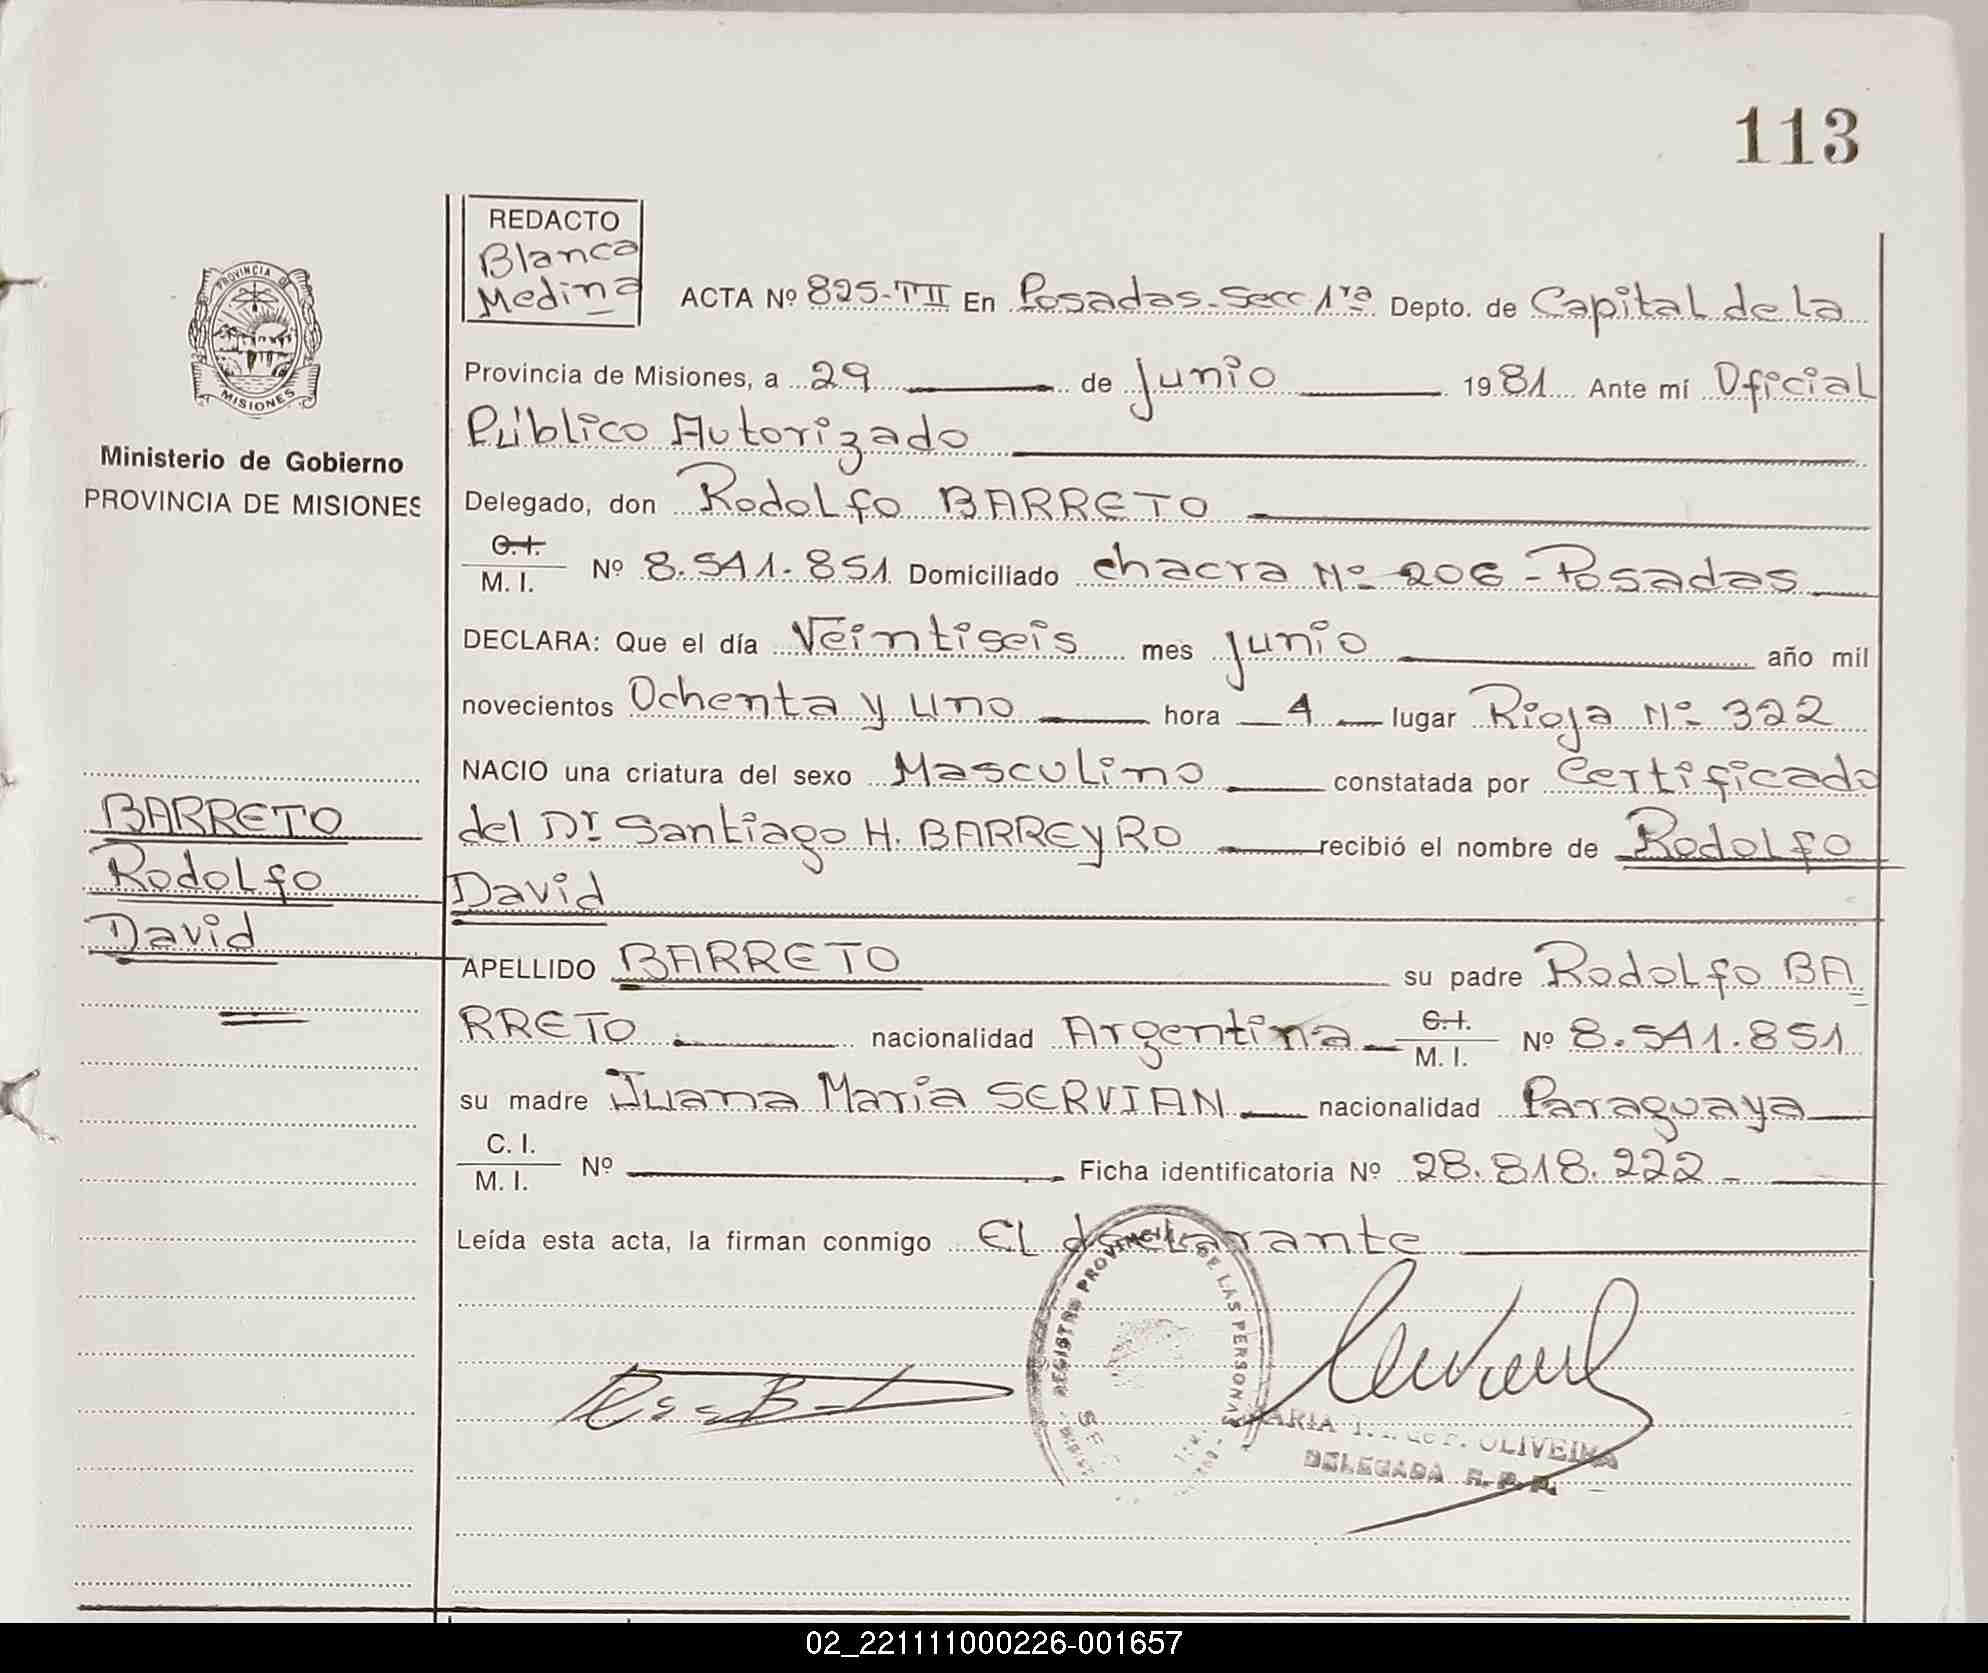 113
REDACTO
Blanca
Medina
PROVINCIA DE
MISIONES
Ministerio de Gobierno
PROVINCIA DE MISIONES
BARRETO
Rodolfo
David
ACTA Nº 825-TII En Posadas-Secc 1ra Depto. de Capital de la
Provincia de Misiones, a 29 de Junio 1981 Ante mí Oficial
Público Autorizado
Delegado, don Rodolfo BARRETO
C.I. M. I. Nº 8.541.851 Domiciliado chacra Nº 206-Posadas
DECLARA: Que el día Veintiseis mes Junio año mil
novecientos Ochenta y uno hora 4 lugar Rioja Nº 322
NACIO una criatura del sexo Masculino constatada por Certificado
del Dr Santiago H. BARREYRO recibió el nombre de Rodolfo
David
APELLIDO BARRETO su padre Rodolfo BA
RRETO nacionalidad Argentina C.I. M. I. Nº 8.541.851
su madre Juana Maria SERVIAN nacionalidad Paraguaya
C. I. M. I. Nº Ficha identificatoria Nº 28.818.222
Leída esta acta, la firman conmigo El declarante
REGISTRO PROVINCIAL DE LAS PERSONAS
OLIVEIRA
DELEGADA R. P. P.
02_221111000226-001657